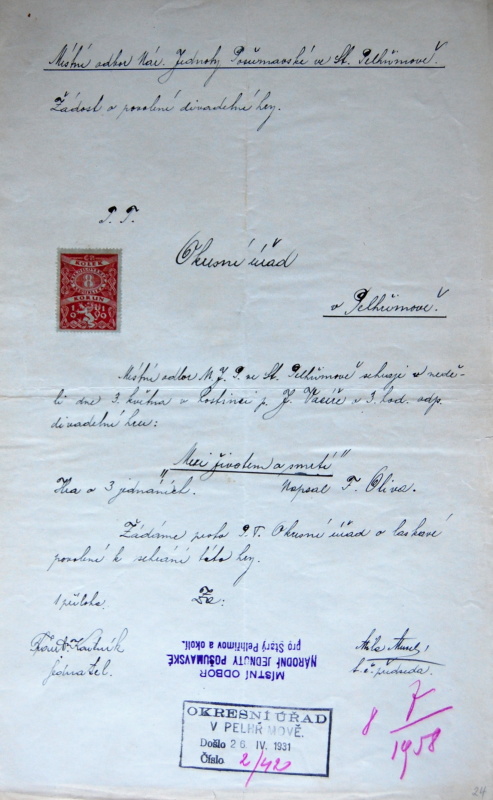 Místní odbor Nár. Jednoty Pošumavské ve St. Pelhřimově.
Žádost o povolení divadelní hry.
P. T.
Okresní úřad
v Pelhřimově.
KOLEK
8
KORUN
Místní odbor N. J. P. ve St. Pelhřimově sehraje v nedě-
li dne 3. května v hostinci p. J. Vaší­ře v 3. hod. odp.
divadelní hru:
„Mezi životem a smrtí"
Hra o 3 jednáních. Napsal F. Oliva.
Žádáme proto P. T. Okresní úřad o laskavé
povolení k sehrání této hry.
1 příloha. Za:
jednatel.
předseda.
MÍSTNÍ ODBOR
NÁRODNÍ JEDNOTY POŠUMAVSKÉ
pro Starý Pelhřimov a okolí.
OKRESNÍ ÚŘAD
V PELHŘIMOVĚ.
Došlo 26. IV. 1931
Číslo 2/420
8 7/1958
24